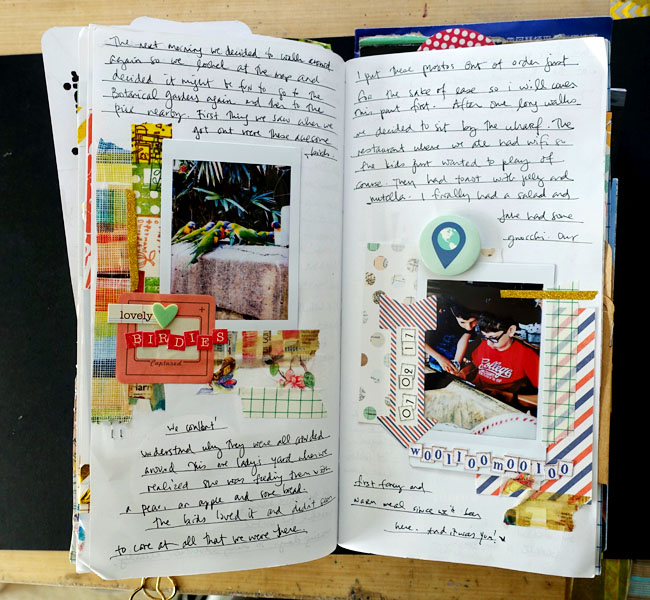 The next morning we decided to walk around
again so we looked at the map and
decided it might be fun to go to the
Botanical gardens again and then to the
pier nearby. First thing we saw when we
got out were these awesome
birds
lovely
BIRDIES
Captured
We couldn't
understand why they were all crowded
around this one lady's yard when we
realized she was feeding them with
a pear, an apple and some bread.
The kids loved it and didn't seem
to care at all that we were there.
I put these photos out of order just
for the sake of ease so i will cover
this part first. After one long walk
we decided to sit by the wharf. The
restaurant where we ate had wifi so
the kids just wanted to play of
course. They had toast with jelly and
nutella. I finally had a salad and
Jake had some
gnocchi. Our
07 02 17
College
woolloomooloo
first fancy and
warm meal since we'd been
here. And it was yum!